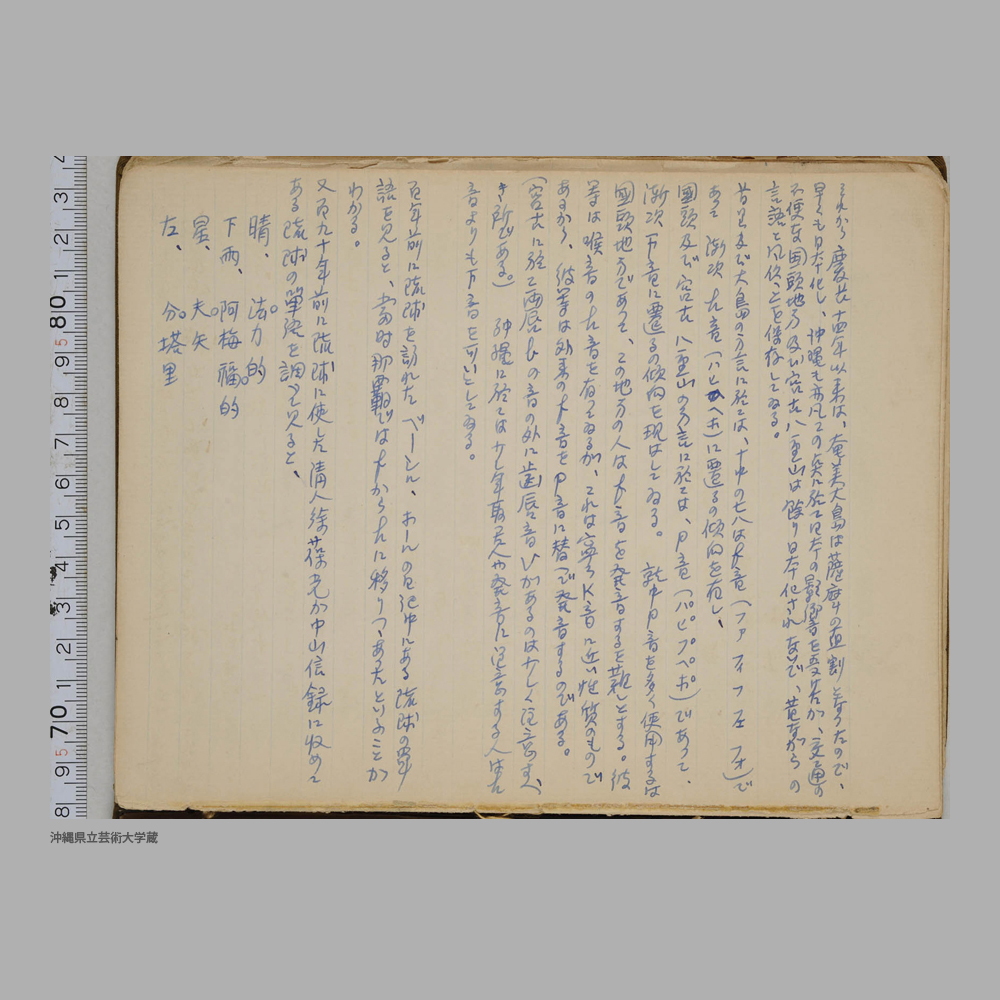 それから慶长十四年以来は、奄美大島は薩摩の直割となったので、
早くも日本化し、沖縄も亦凡ての点に於て日本の影響を受けたが、交通の
不便な国頭地方及び宮古八重山は餘り日本化されないで、昔ながらの
言語と風俗とを保存してゐる。
首里及び大島の方言に於ては、十中の七八はf音(ファ フィ フ フェ フォ)で
あって 漸次h音(ハヒヘホ)に遷るの傾向を有し、
國頭及び宮古八重山の方言に於ては、P音(パピプペポ)であって、
漸次f音に遷るの傾向を現はしてゐる。 就中P音を多く使用するは
國頭地方であって、この地方の人はf音を発音するを難しとする。彼
等は喉音のh音を有ってゐるが、これは寧ろK音に近い性質のもので
あるから、彼等は外来のf音をP音に替へて発音するのである。
(宮古に於て両唇fの音の外に歯唇音Vがあるのは少しく注意すべ
き所である。) 沖縄に於ては少し年取た人や発音に注意する人はh
音よりもf音を可いとしてゐる。
百年前に琉球を訪れたベーシル、ホールの日記中にある琉球の単
語を見ると、當時那覇ではfからhに移りつゝあったといふことが
わかる。
又百九十年前に琉球に使した清人徐葆光が中山信録に收めて
ある琉球の單語を調べて見ると、
晴、 法力的
下雨、 阿梅福的
星、 夫矢
左、 分塔里
8 9 5 70 1 2 3 4 5 6 7 8 9 5 80 1 2 3
沖縄県立芸術大学蔵